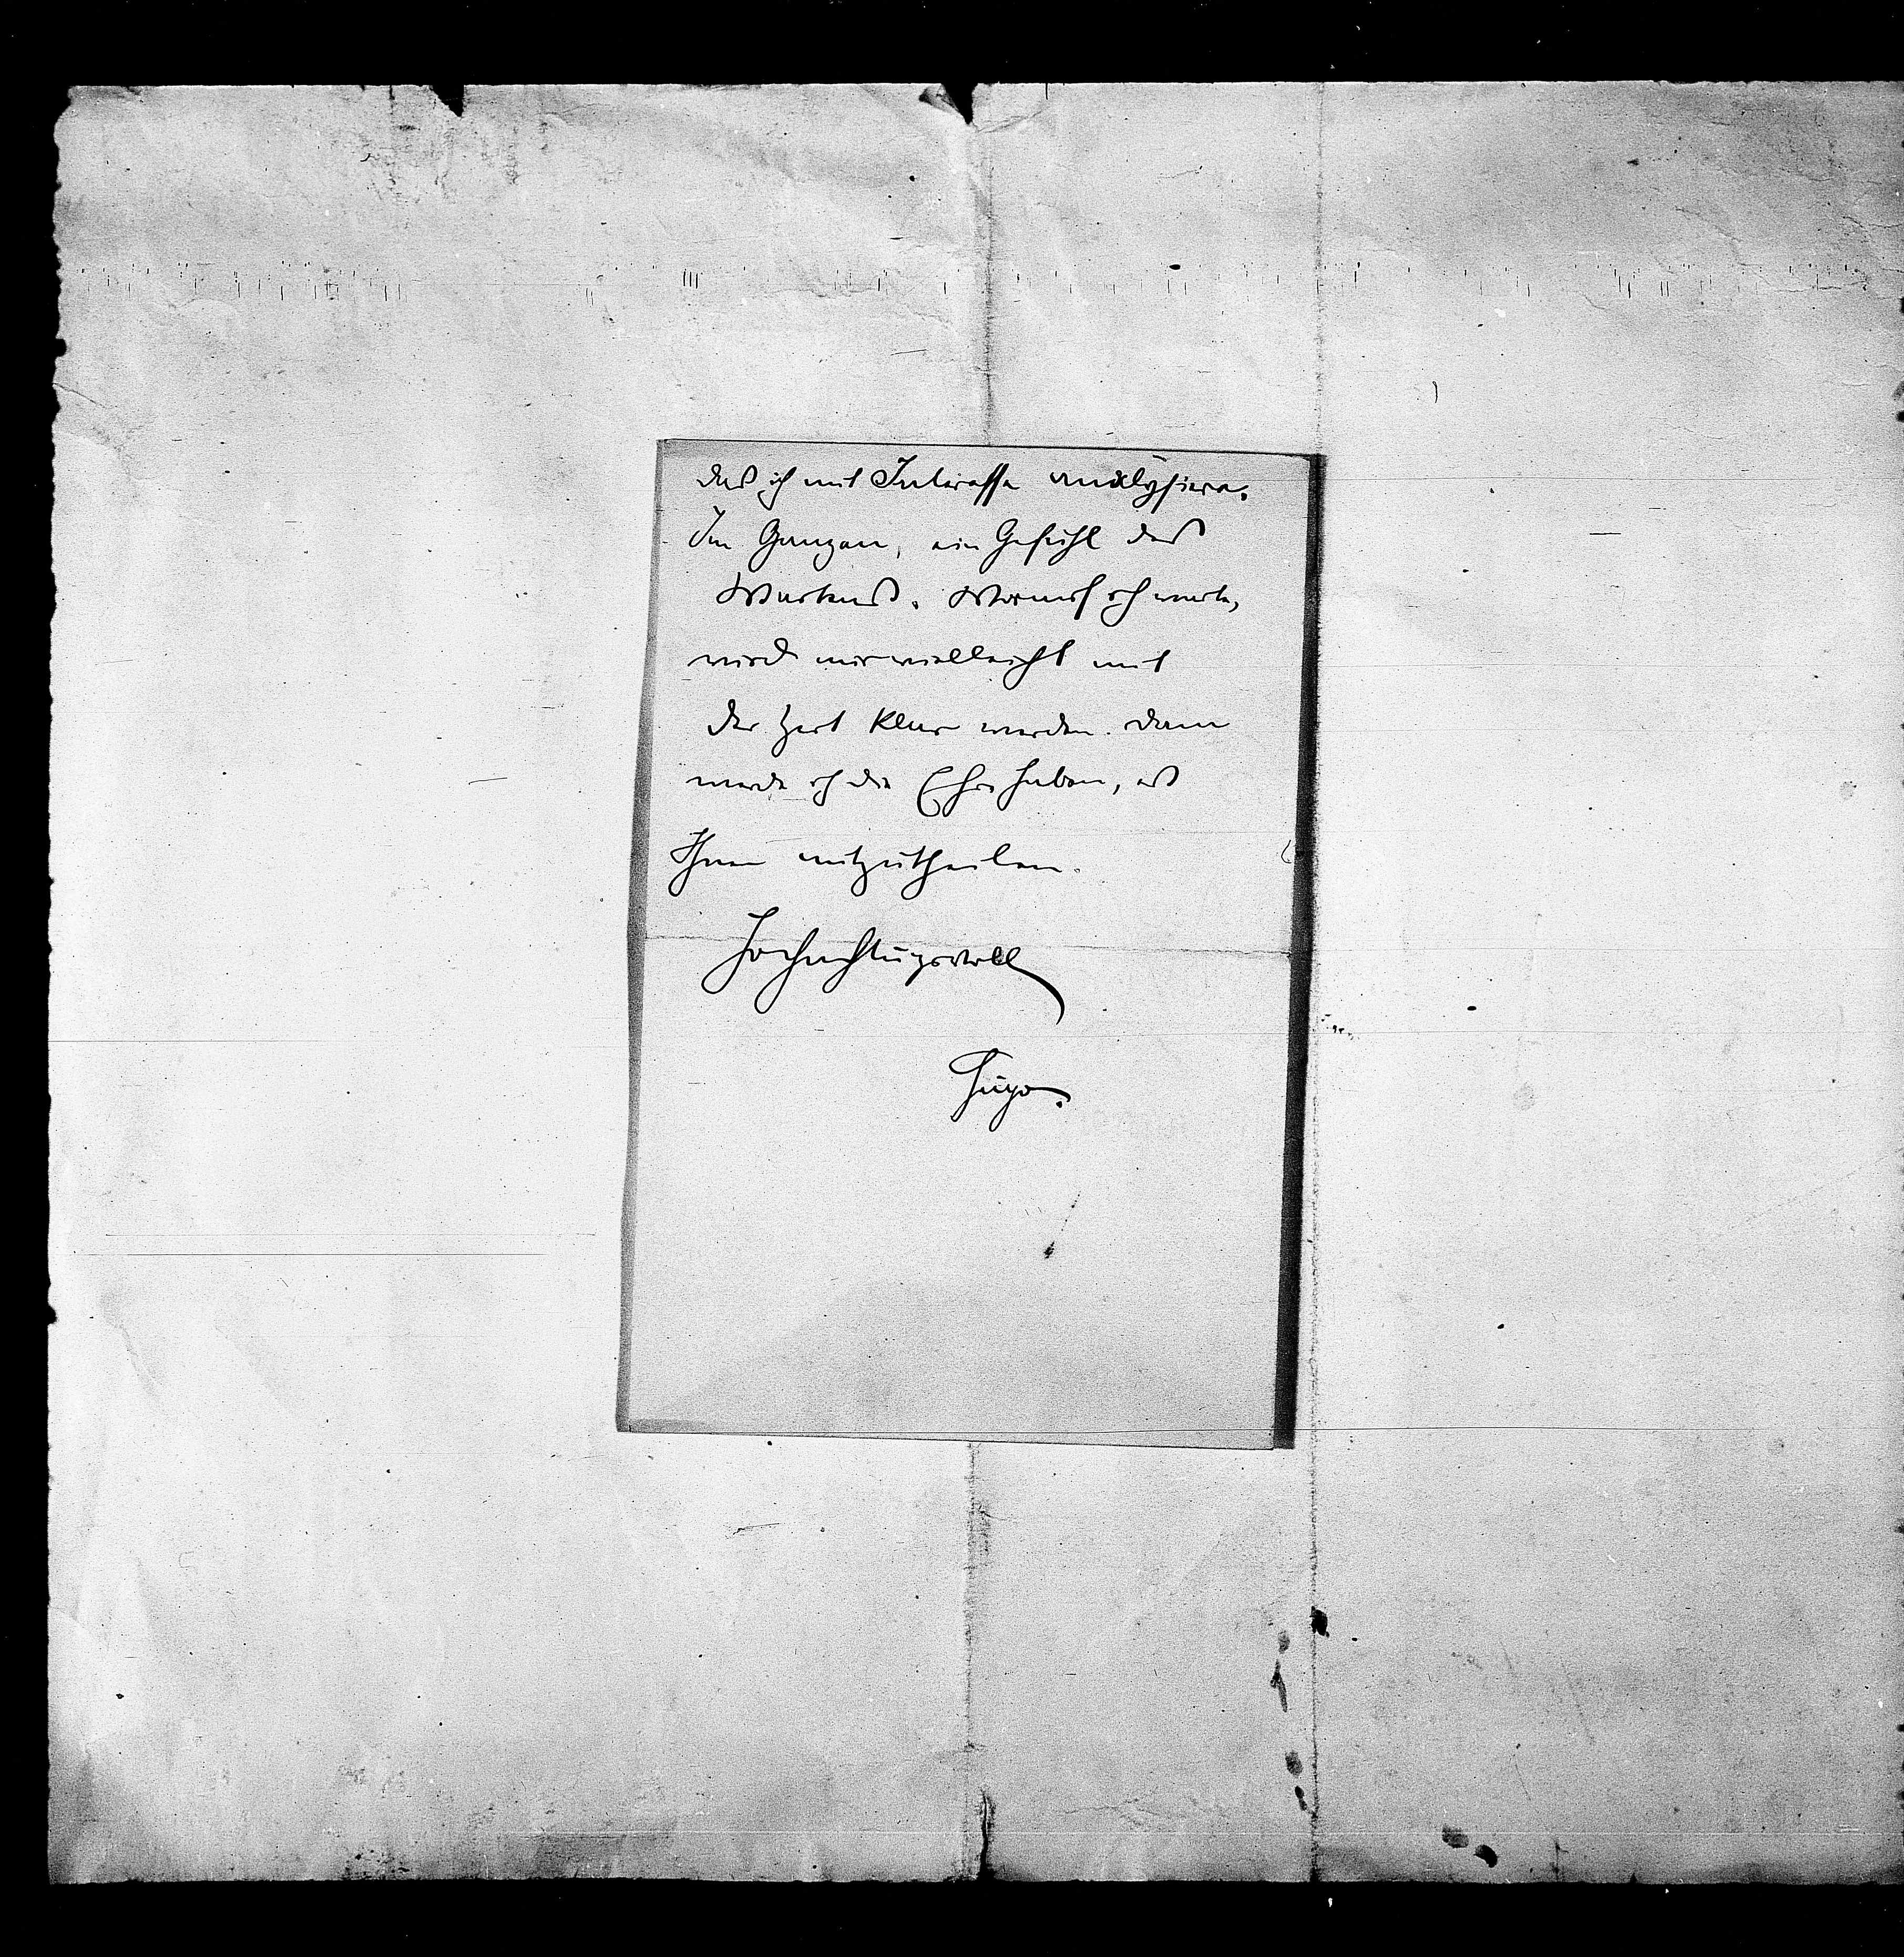 das ich mit Interesse analysiere.
Im Ganzen, ein Gefühl des
Wartens. Worauf ich warte,
wird mir vielleicht mit
der Zeit klar werden. Dann
werde ich die Ehre haben, es
Ihnen mitzutheilen.
Hochachtungsvoll
Hugo.